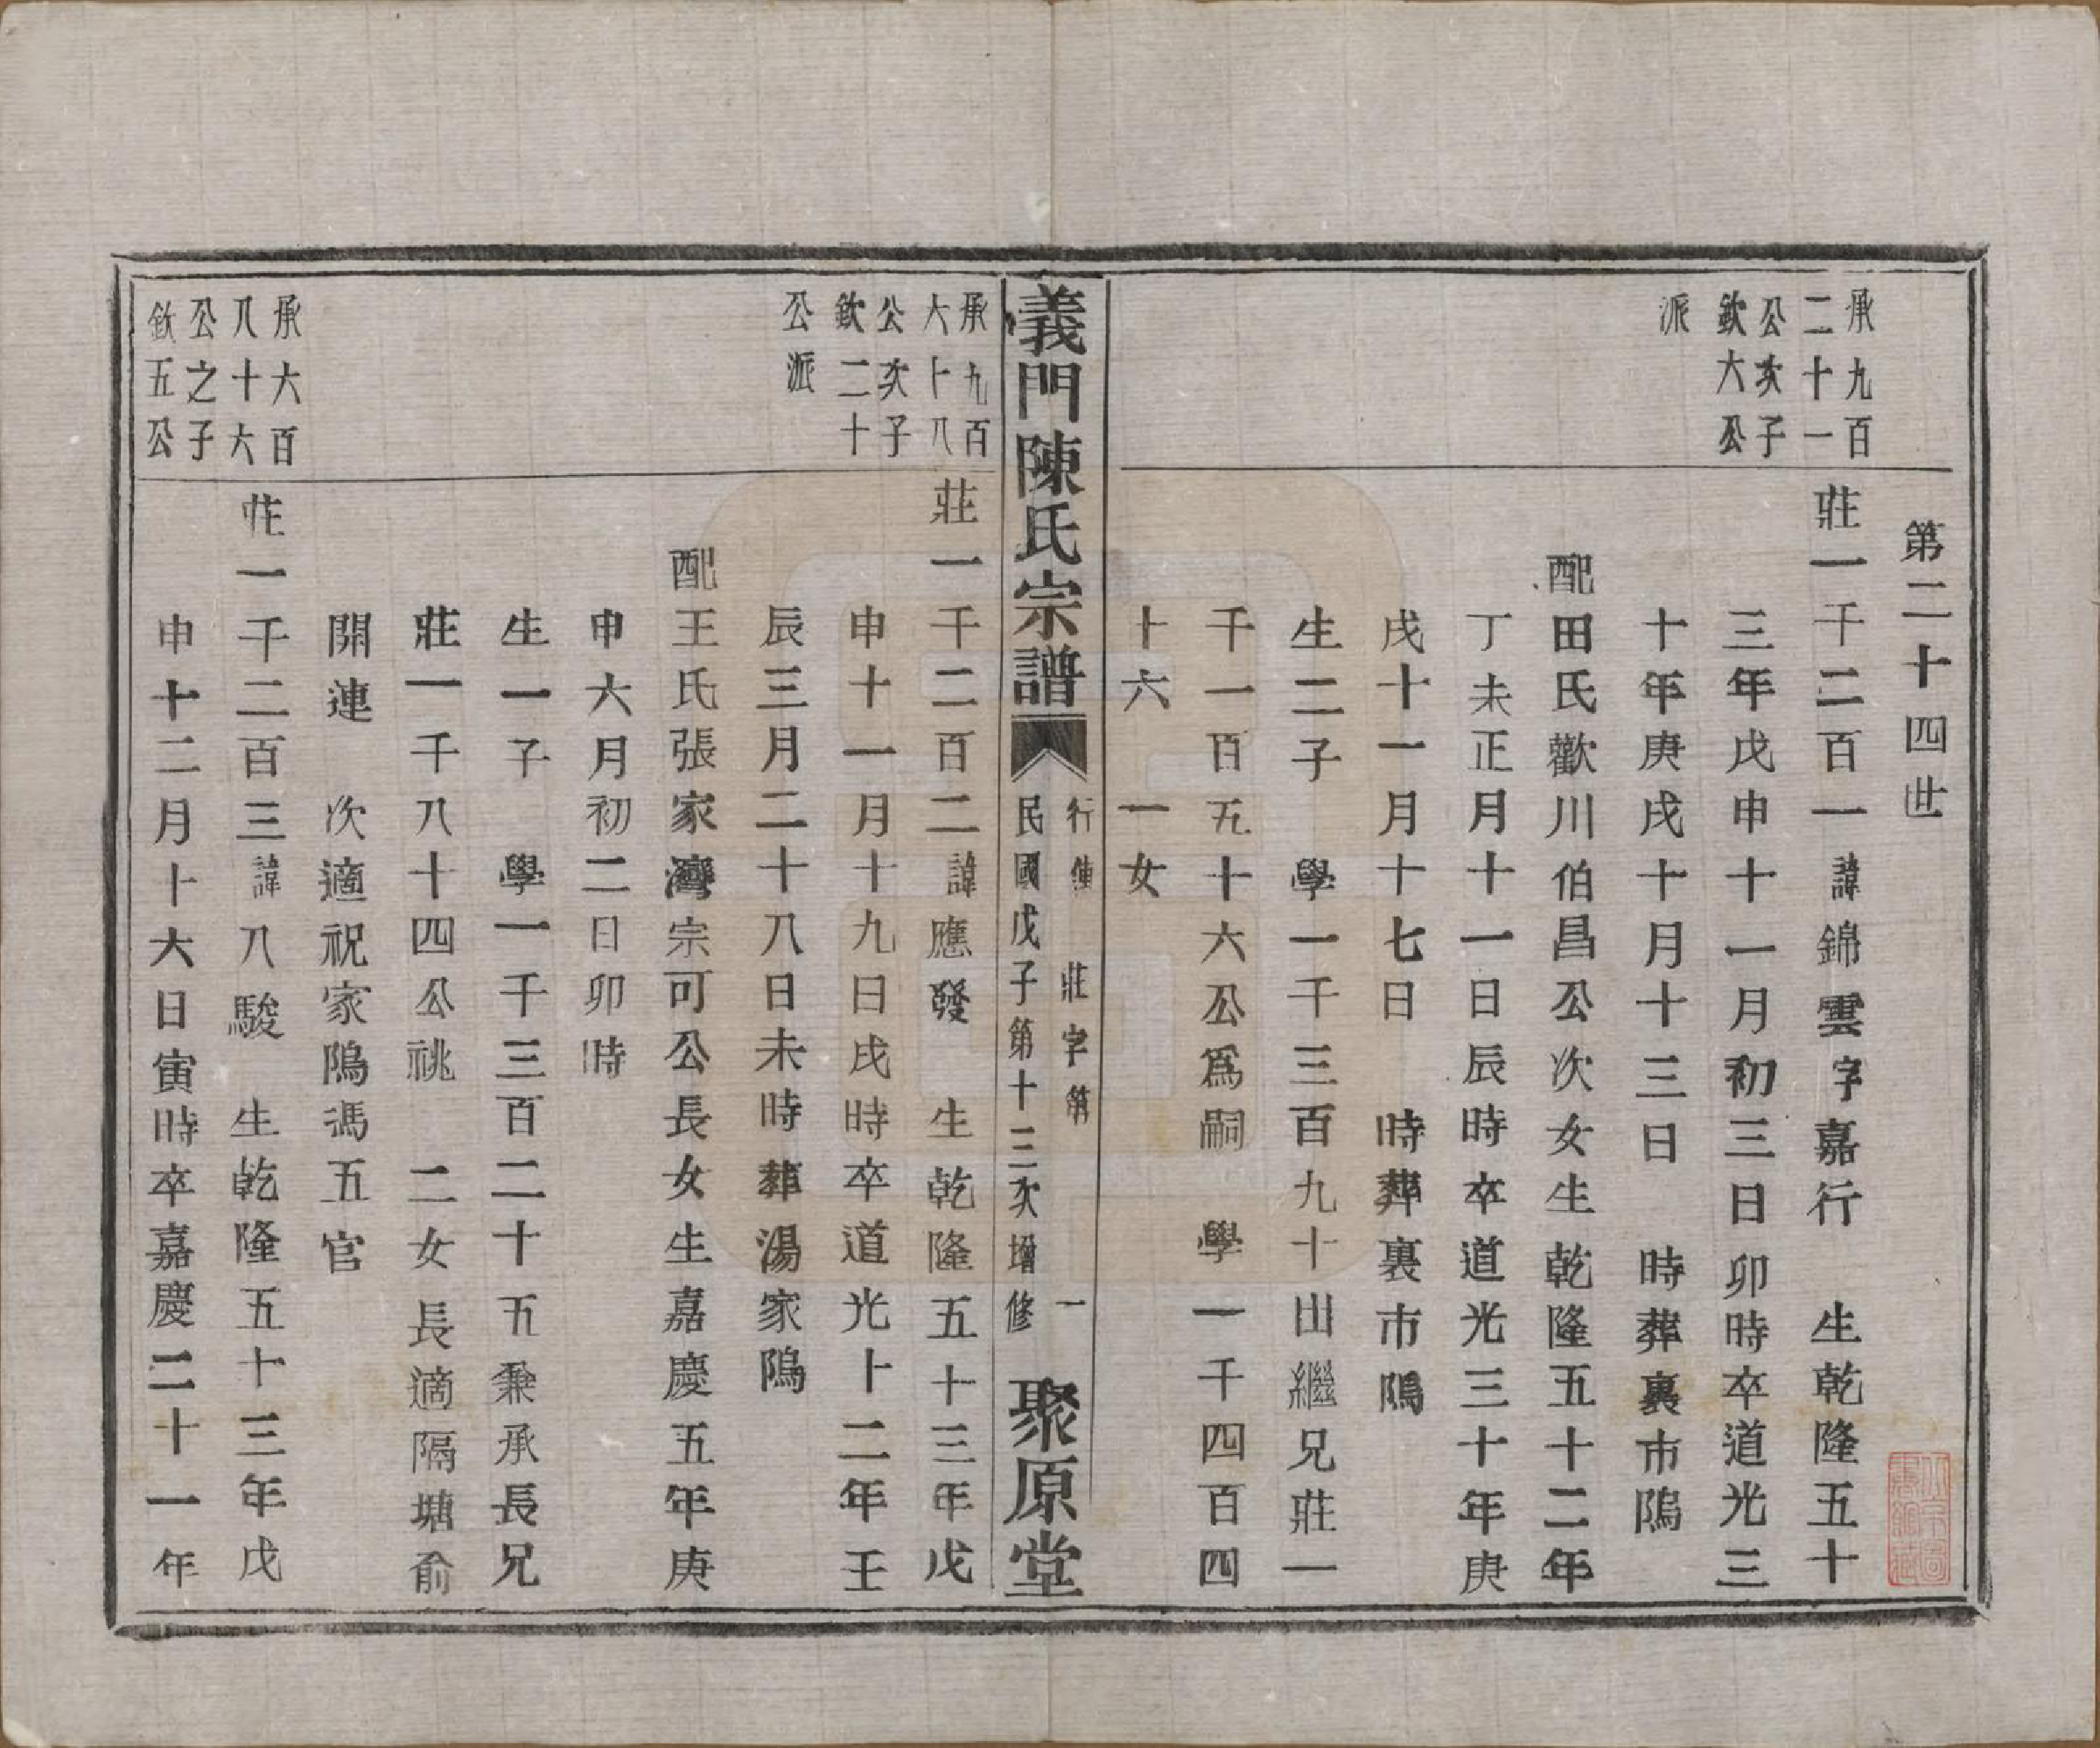 第二十四世
承九百
二十一
公次子
欽六公
派
莊一千二百一諱錦雲字嘉行 生乾隆五十
三年戊申十一月初三日卯時卒道光三
十年庚戌十月十三日 時葬裏市隖
配田氏歡川伯昌公次女生乾隆五十二年
丁未正月十一日辰時卒道光三十年庚
戌十一月十七日 時葬裏市隖
生二子 學一千三百九十出繼兄莊一
千一百五十六公爲嗣 學一千四百四
十六 一女
義門陳氏宗譜
行傳 莊字第 一
民國戊子第十三次增修
聚原堂
承九百
六十八
公次子
欽二十
公派
莊一千二百二諱應發 生乾隆五十三年戊
申十一月十九日戌時卒道光十二年壬
辰三月二十八日未時葬湯家隖
配王氏張家灣宗可公長女生嘉慶五年庚
申六月初二日卯時
生一子 學一千三百二十五兼承長兄
莊一千八十四公祧 二女長適隔塘俞
開連 次適祝家隖馮五官
承六百
八十六
公之子
欽五公
莊一千二百三諱八駿 生乾隆五十三年戊
申十二月十六日寅時卒嘉慶二十一年